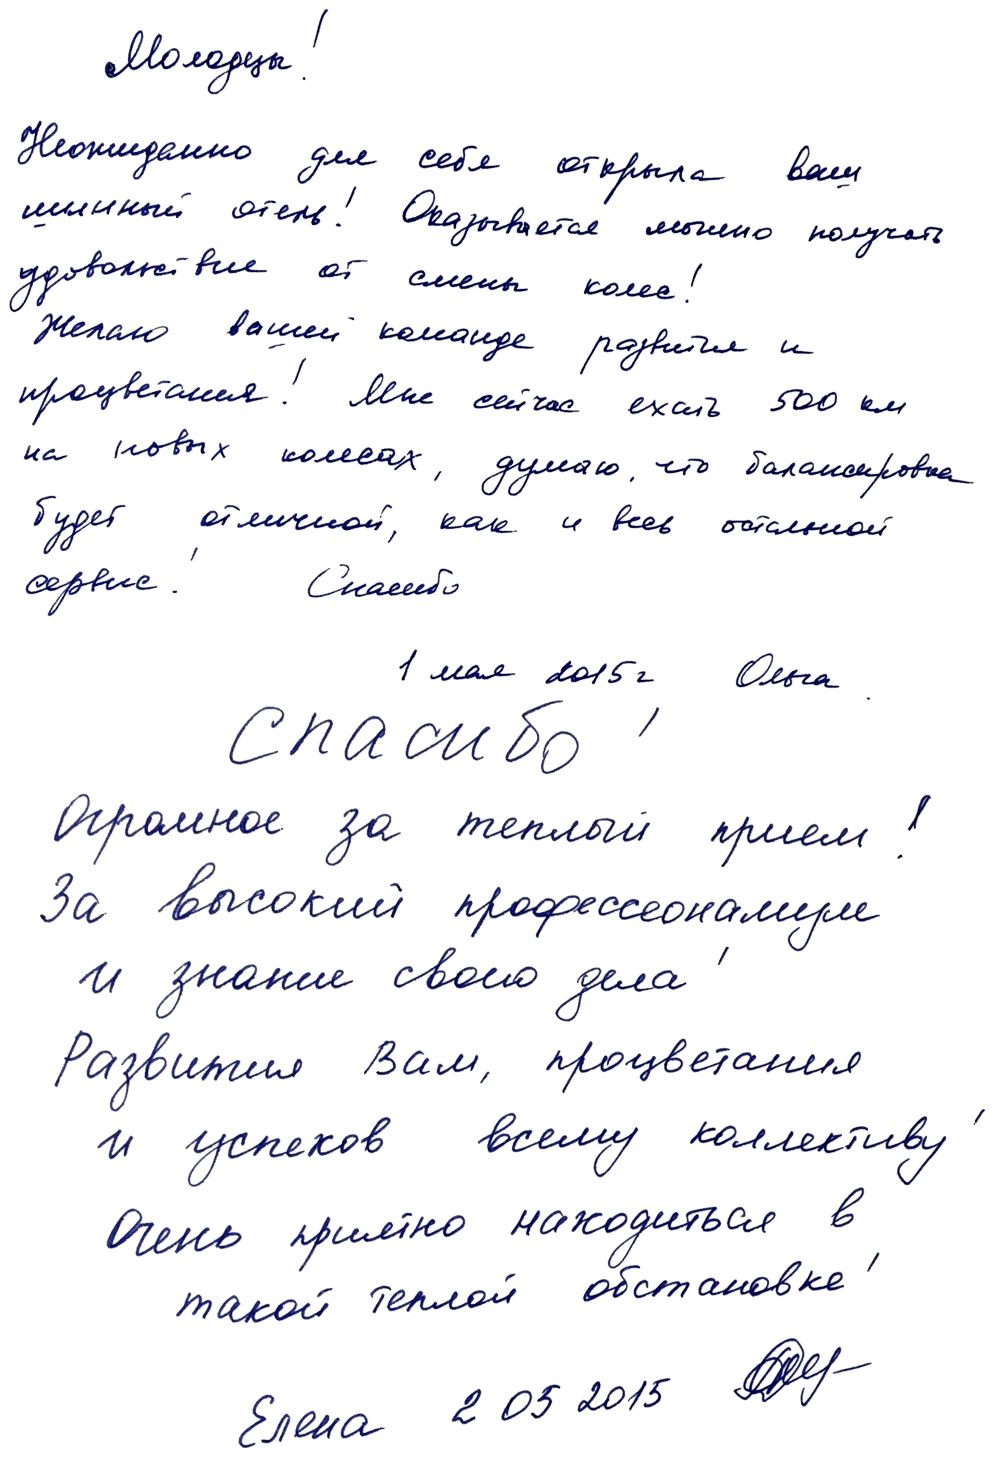 Молодцы!
Неожиданно для себя открыла ваш
шинный отель! Оказывается можно получать
удовольствие от смены колес!
Желаю вашей команде развития и
процветания! Мне сейчас ехать 500 км
на новых колесах, думаю, что балансировка
будет отличной, как и весь остальной
сервис! Спасибо
1 мая 2015 г Ольга
Спасибо!
Огромное за теплый прием!
За высокий профессионализм
и знание своего дела!
Развития Вам, процветания
и успехов всему коллективу!
Очень приятно находиться в
такой теплой обстановке!
Елена 2 05 2015